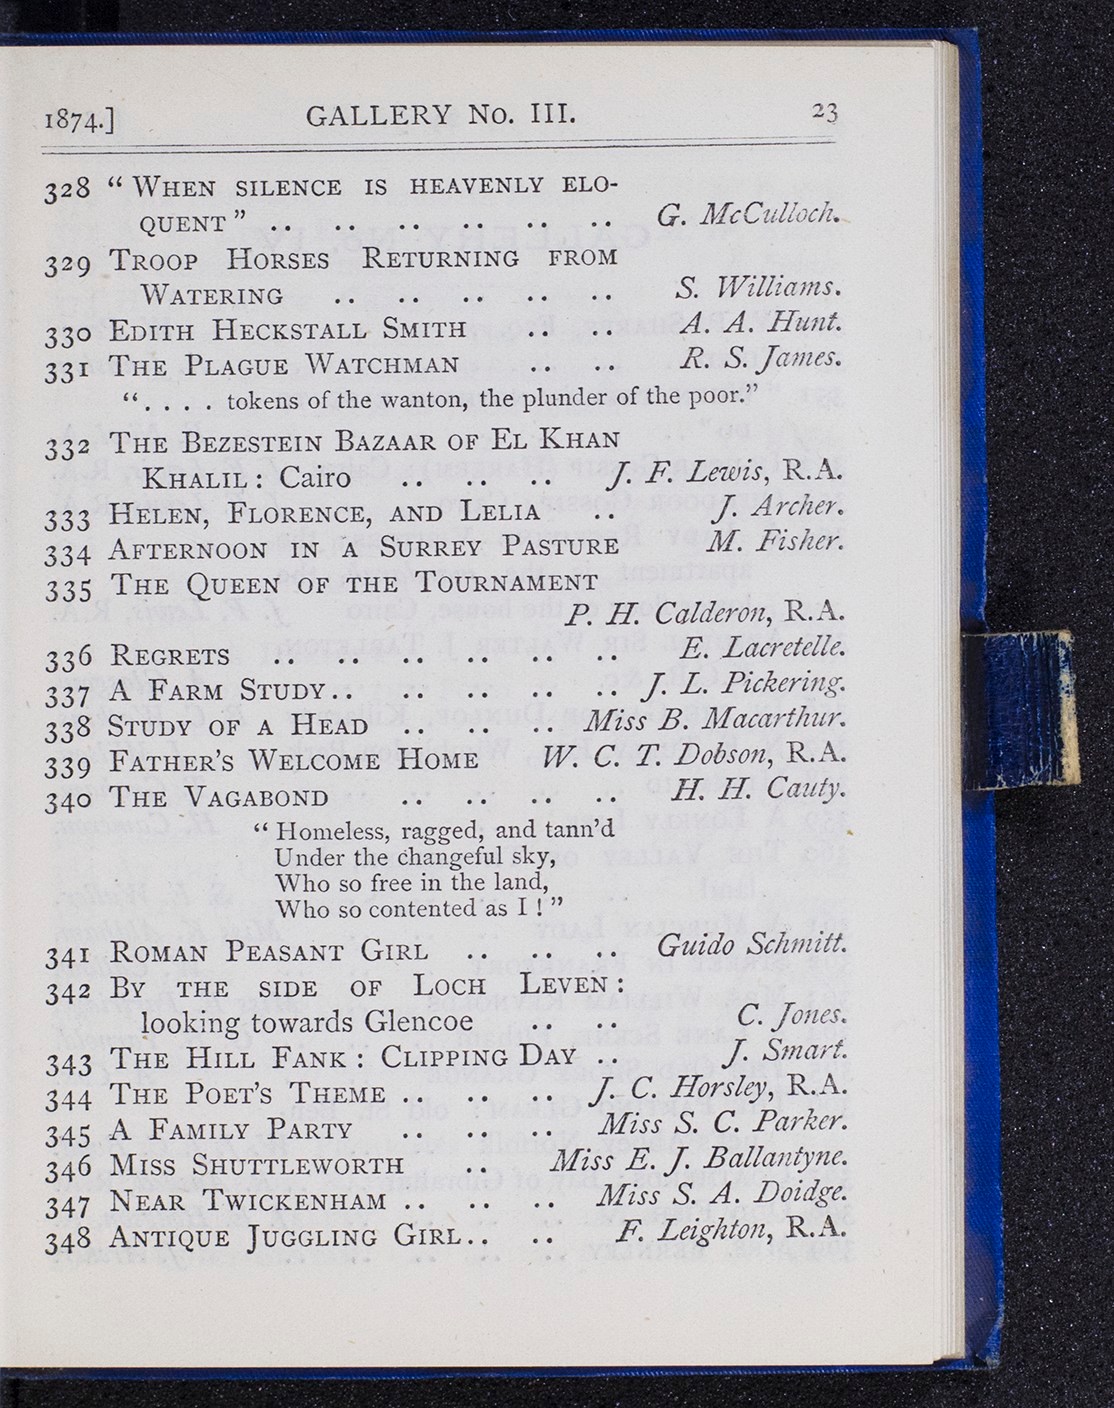 1874.] GALLERY No. III. 23
328 “ WHEN SILENCE IS HEAVENLY ELO-
QUENT ” .. .. .. .. .. .. G. McCulloch.
329 TROOP HORSES RETURNING FROM
WATERING .. .. .. .. .. S. Williams.
330 EDITH HECKSTALL SMITH .. .. A. A. Hunt.
331 THE PLAGUE WATCHMAN .. .. R. S. James.
“. . . . tokens of the wanton, the plunder of the poor.”
332 THE BEZESTEIN BAZAAR OF EL KHAN
KHALIL : Cairo .. .. .. J. F. Lewis, R.A.
333 HELEN, FLORENCE, AND LELIA .. J. Archer.
334 AFTERNOON IN A SURREY PASTURE M. Fisher.
335 THE QUEEN OF THE TOURNAMENT
P. H. Calderon, R.A.
336 REGRETS .. .. .. .. .. .. E. Lacretelle.
337 A FARM STUDY.. .. .. .. .. J. L. Pickering.
338 STUDY OF A HEAD .. .. .. Miss B. Macarthur.
339 FATHER’S WELCOME HOME W. C. T. Dobson, R.A.
340 THE VAGABOND .. .. .. .. H. H. Cauty.
“ Homeless, ragged, and tann’d
Under the changeful sky,
Who so free in the land,
Who so contented as I ! ”
341 ROMAN PEASANT GIRL .. .. .. Guido Schmitt.
342 BY THE SIDE OF LOCH LEVEN :
looking towards Glencoe .. .. C. Jones.
343 THE HILL FANK : CLIPPING DAY .. J. Smart.
344 THE POET’S THEME .. .. .. J. C. Horsley, R.A.
345 A FAMILY PARTY .. .. .. Miss S. C. Parker.
346 MISS SHUTTLEWORTH .. Miss E. J. Ballantyne.
347 NEAR TWICKENHAM .. .. .. Miss S. A. Doidge.
348 ANTIQUE JUGGLING GIRL.. .. F. Leighton, R.A.